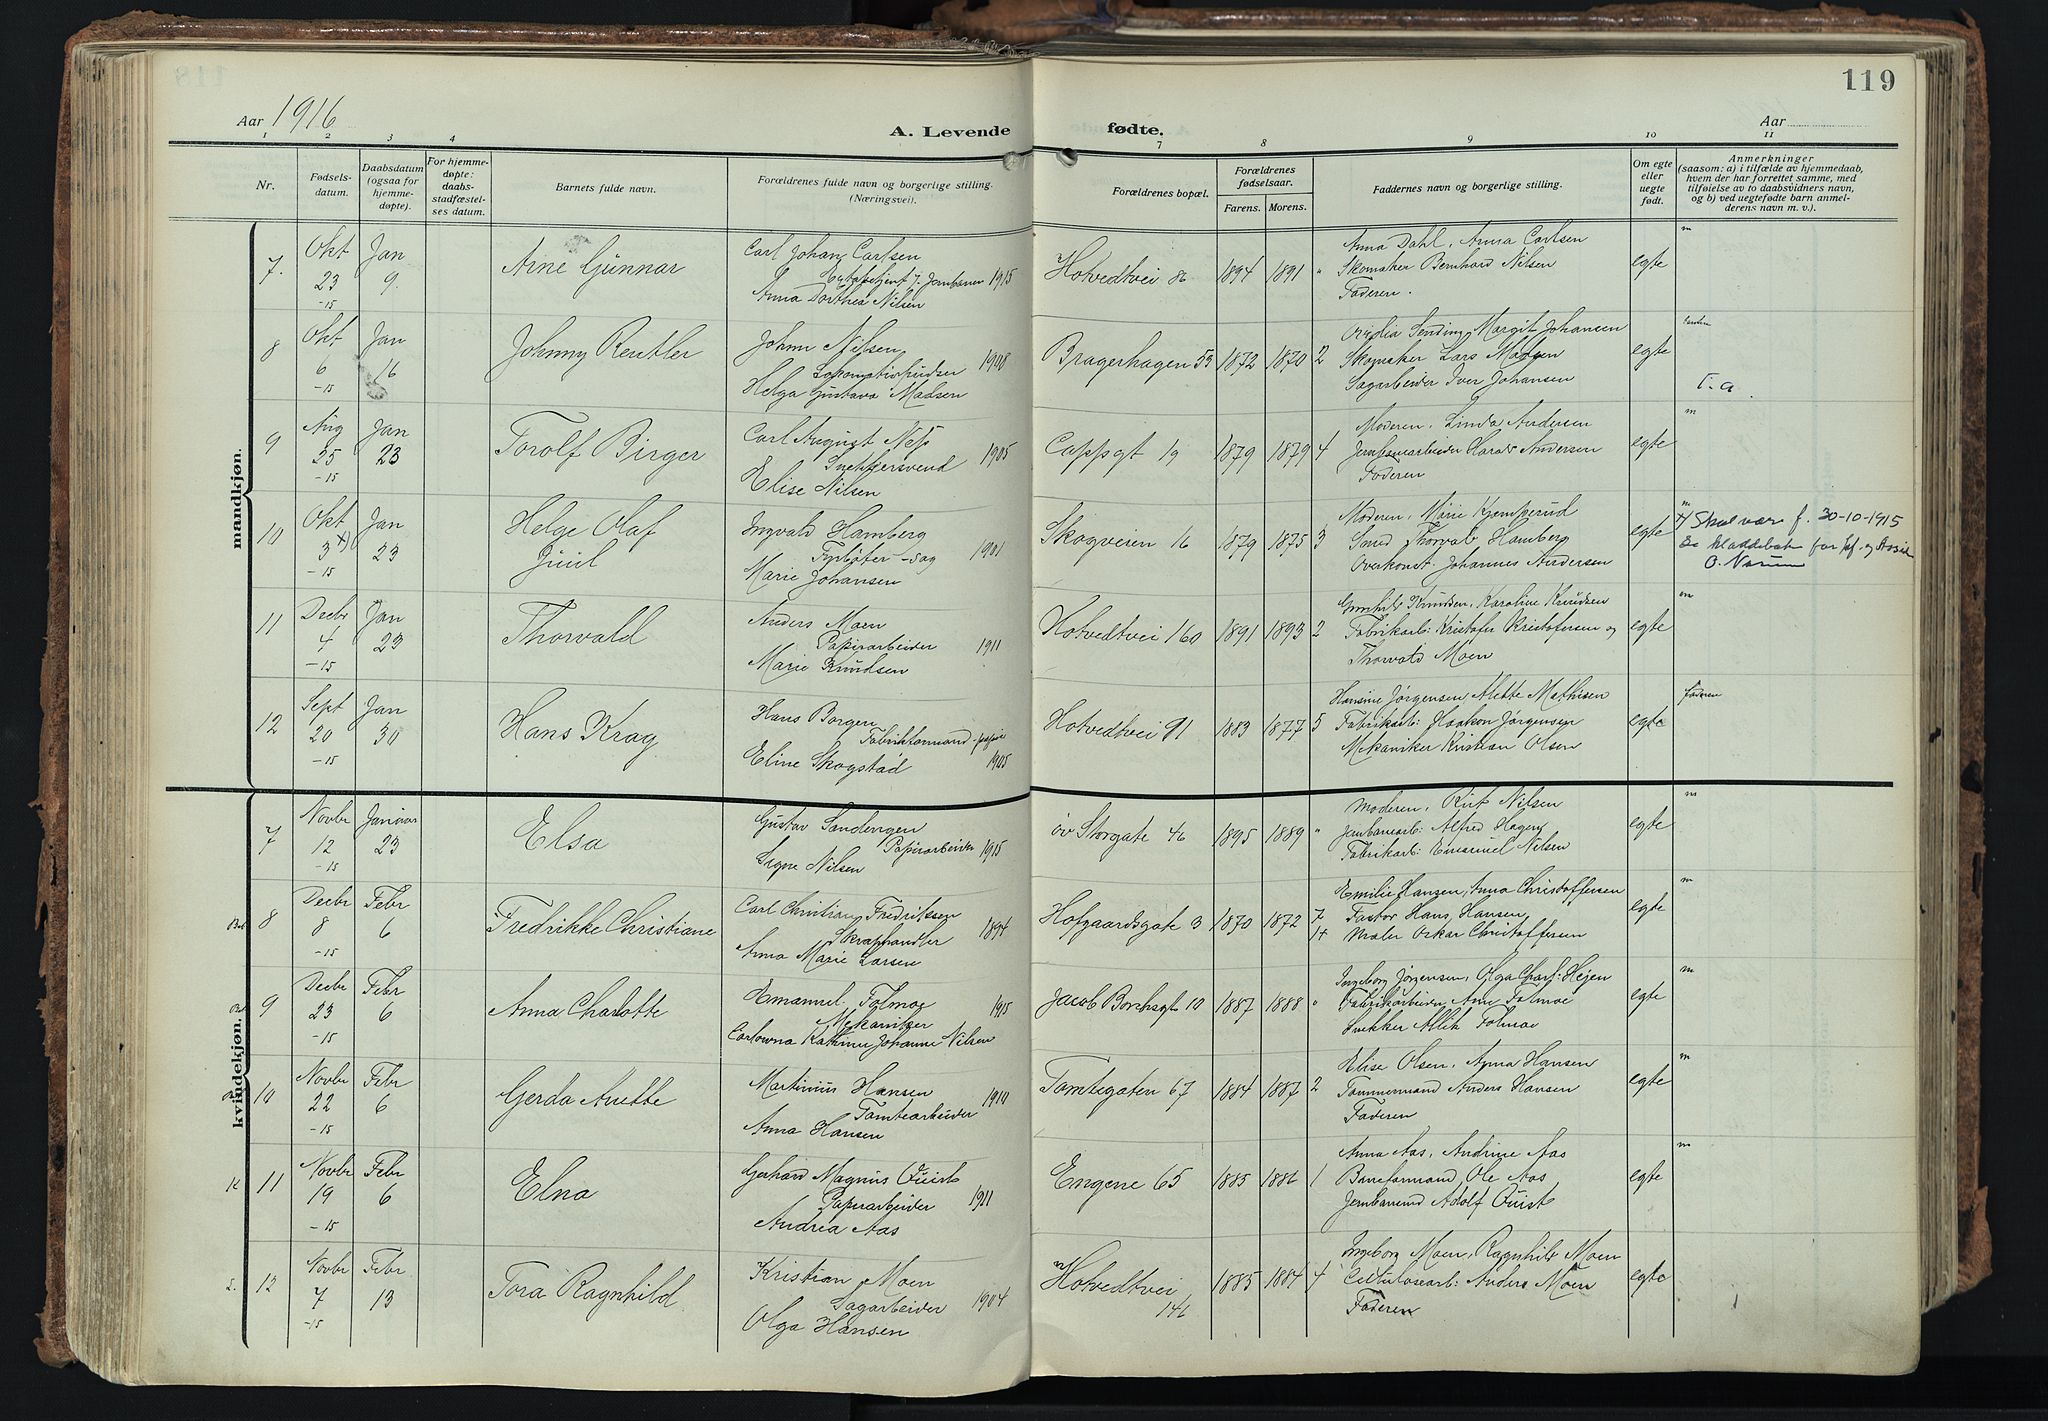 119
Aar 1916
A. Levende fødte.
Aar
1 2 3 4 7 8 9 10 11
Nr.
Fødsels-
datum.
Daabsdatum
(ogsaa for
hjemme-
døpte).
For hjemme-
døpte:
daabs-
stadfæstel-
ses datum.
Barnets fulde navn.
Forældrenes fulde navn og borgerlige stilling.
(Næringsvei).
Forældrenes bopæl.
Forældrenes
fødselsaar.
Farens. Morens.
Faddernes navn og borgerlige stilling.
Om egte
eller
uegte
født.
Anmerkninger
(saasom: a) i tilfælde av hjemmedaab,
hvem der har forrettet samme, med
tilføielse av to daabsvidners navn,
og b) ved uegtefødte barn anmel-
derens navn m. v.).
mandkjøn.
7.
Okt
23
-15
Jan
9.
Arne Gunnar
Carl Johan Carlsen
Jernbanen 1915
Anna Dorthea Nilsen
Hotvedtvei 86
1894 1891 "
Anna Dahl, Anna Carlsen
Skomaker Bernhard Nilsen
Faderen.
egte
m
8
Okt
6
-15
Jan
16
Johnny Rentler
Johan Nilsen
Lokomotivpudser 1908
Helga Gustava Madsen
Bragerhagen 53
1872 1870 2
Sending, Margit Johansen
Skomaker Lars Madsen
Sagarbeider Iver Johansen
egte
T.a.
9
Aug
25
-15
Jan
23
Torolf Birger
Carl August Ness
Snekkersvend 1905
Elise Nilsen
Cappgt 19
1879 1879 4
Moderen, Linda Andersen
Jernbanearbeider Harald Andersen
Faderen
egte
m
10
Okt
3 x)
-15
Jan
23
Helge Olaf
Juul
Ingvald Hamberg
Fyrbøter - sag 1901
Marie Johansen
Skogveien 16
1879 1875 3
Moderen, Marie Kjemperud
Smed Thorvald Hamberg
Overkonst. Johannes Andersen
egte
m
x) Skal være f. 30-10-1915
11
Decbr
4
-15
Jan
23
Thorvald
Anders Moen
Papirarbeider 1911
Marie Knudsen
Hotvedtvei 160
1891 1893 2
Gunhild Knudsen, Karoline Knudsen
Fabrikarb: Kristofer Kristofersen og
Thorvald Moen
egte
m
12
Sept
20
-15
Jan
30
Hans Krag
Hans Borgen
Fabrikformand - papir
Eline Skogstad 1905
Hotvedtvei 91
1883 1877 5
Hansine Jørgensen, Alette Mathisen
Fabrikarb: Haakon Jørgensen
Mekaniker Kristian Olsen
egte
faderen
kvindekjøn.
7
Novbr
12
-15
Januar
23
Elsa
Gustav Sandengen
Papirarbeider 1915
Signe Nilsen
øv Storgate 46
1895 1889 "
Moderen, Rut Nilsen
Jernbanearb: Alfred Hagen
Fabrikarb: Emanuel Nilsen
egte
m
8
Decbr
8
-15
Febr
6
Fredrikke Christiane
Carl Christian Fredriksen
Skraphandler 1894
Anna Marie Larsen
Hofgaardsgate 3
1870 1872 7
1+
Emilie Hansen, Anna Christoffersen
Hans Hansen
Maler Oskar Christoffersen
egte
m
9
Decbr
23
-15
Febr
6
Anna Charlotte
Emanuel Folmoe
Mekaniker 1915
Carlowna Kathrine Johanne Nilsen
Jacob Borchsgt 10
1887 1888 "
Ingeborg Jørgensen, Olga Charl: Hejen
Fabrikarbeider Arne Folmoe
Snekker Folmoe
egte
m
10
Novbr
22
-15
Febr
6
Gerda Anette
Martinius Hansen
Tomtearbeider 1910
Anna Hansen
Tomtegaten 67
1884 1887 2
Elise Olsen, Anna Hansen
Tømmermand Anders Hansen
Faderen
egte
m
K 11
Novbr
19
-15
Febr
6
Elna
Gerhard Magnus Quist
Papirarbeider 1911
Andrea Aas
Engene 65
1885 1886 1
Anna Aas, Andrine Aas
Baneformand Ole Aas
Jernbanemd Adolf Quist
egte
m
S. 12
Novbr
7
-15
Febr
13
Tora Ragnhild
Kristian Moen
Sagarbeider 1904
Olga Hansen
Hotvedtvei
146
1885 1884 4
Ingeborg Moen, Ragnhild Moen
Cellulosearb: Anders Moen
Faderen
egte